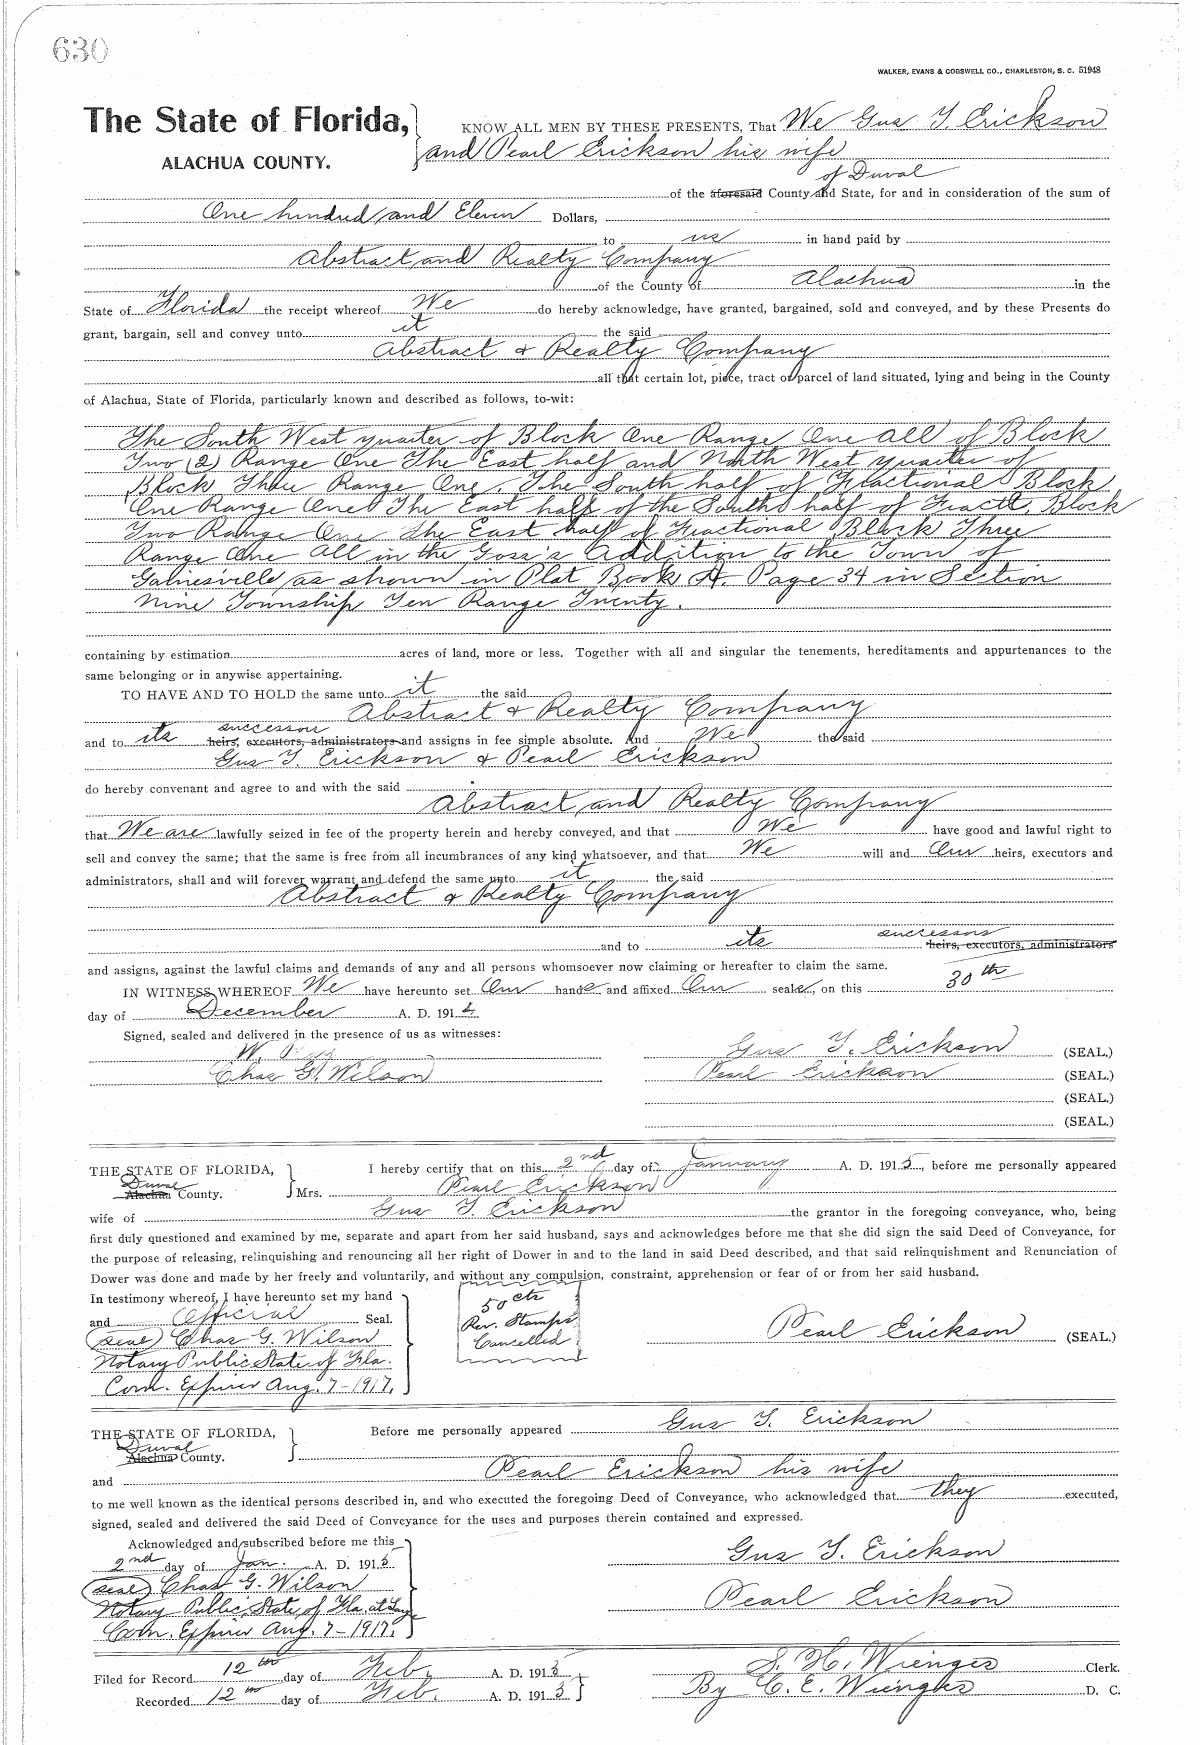 630
WALKER, EVANS & COGSWELL CO., CHARLESTON, S. C. 51948
The State of Florida,
ALACHUA COUNTY.
KNOW ALL MEN BY THESE PRESENTS, That We Gus T. Erickson
and Pearl Erickson his wife
of Duval
of the aforesaid County and State, for and in consideration of the sum of
One hundred and Eleven Dollars,
to us in hand paid by
Abstract and Realty Company
of the County of Alachua in the
State of Florida the receipt whereof We do hereby acknowledge, have granted, bargained, sold and conveyed, and by these Presents do
grant, bargain, sell and convey unto it the said
Abstract & Realty Company
all that certain lot, piece, tract or parcel of land situated, lying and being in the County
of Alachua, State of Florida, particularly known and described as follows, to-wit:
The South West quarter of Block One Range One all of Block
Two (2) Range One The East half and North West quarter of
Block Three Range One, The South half of Fractional Block
One Range One The East half of the South half of Fractl. Block
Two Range One The East half of Fractional Block Three
Range One all in the Goss's Addition to the Town of
Gainesville as shown in Plat Book A. Page 34 in Section
Nine Township Ten Range Twenty.
containing by estimation acres of land, more or less. Together with all and singular the tenements, hereditaments and appurtenances to the
same belonging or in anywise appertaining.
TO HAVE AND TO HOLD the same unto it the said
Abstract & Realty Company
successors
and to its heirs, executors, administrators and assigns in fee simple absolute. And We the said
Gus T. Erickson & Pearl Erickson
do hereby convenant and agree to and with the said
Abstract and Realty Company
that We are lawfully seized in fee of the property herein and hereby conveyed, and that We have good and lawful right to
sell and convey the same; that the same is free from all incumbrances of any kind whatsoever, and that We will and Our heirs, executors and
administrators, shall and will forever warrant and defend the same unto it the said
Abstract & Realty Company
successors
and to its heirs, executors, administrators
and assigns, against the lawful claims and demands of any and all persons whomsoever now claiming or hereafter to claim the same.
IN WITNESS WHEREOF We have hereunto set Our hands and affixed Our seals, on this 30th
day of December A. D. 1914
Signed, sealed and delivered in the presence of us as witnesses:
W. Gus T. Erickson (SEAL.)
Chas G. Wilson Pearl Erickson (SEAL.)
(SEAL.)
(SEAL.)
THE STATE OF FLORIDA,
Duval
Alachua County.
I hereby certify that on this 2nd day of January A. D. 1915, before me personally appeared
Mrs. Pearl Erickson
wife of Gus T. Erickson the grantor in the foregoing conveyance, who, being
first duly questioned and examined by me, separate and apart from her said husband, says and acknowledges before me that she did sign the said Deed of Conveyance, for
the purpose of releasing, relinquishing and renouncing all her right of Dower in and to the land in said Deed described, and that said relinquishment and Renunciation of
Dower was done and made by her freely and voluntarily, and without any compulsion, constraint, apprehension or fear of or from her said husband.
In testimony whereof, I have hereunto set my hand
and Official Seal.
(seal) Chas G. Wilson
Notary Public State of Fla.
Com. Expires Aug. 7-1917.
50 cts
Rev. Stamps
Cancelled
Pearl Erickson (SEAL.)
THE STATE OF FLORIDA,
Duval
Alachua County.
Before me personally appeared Gus T. Erickson
and Pearl Erickson his wife
to me well known as the identical persons described in, and who executed the foregoing Deed of Conveyance, who acknowledged that they executed,
signed, sealed and delivered the said Deed of Conveyance for the uses and purposes therein contained and expressed.
Acknowledged and subscribed before me this
2nd day of Jan. A. D. 1915.
(seal) Chas G. Wilson
Notary Public, State of Fla. at Large
Com. Expires Aug. 7-1917.
Gus T. Erickson
Pearl Erickson
Filed for Record 12th day of Feb. A. D. 191
Recorded 12th day of Feb. A. D. 191
S. H. Wienges Clerk.
By C. E. Wienges D. C.